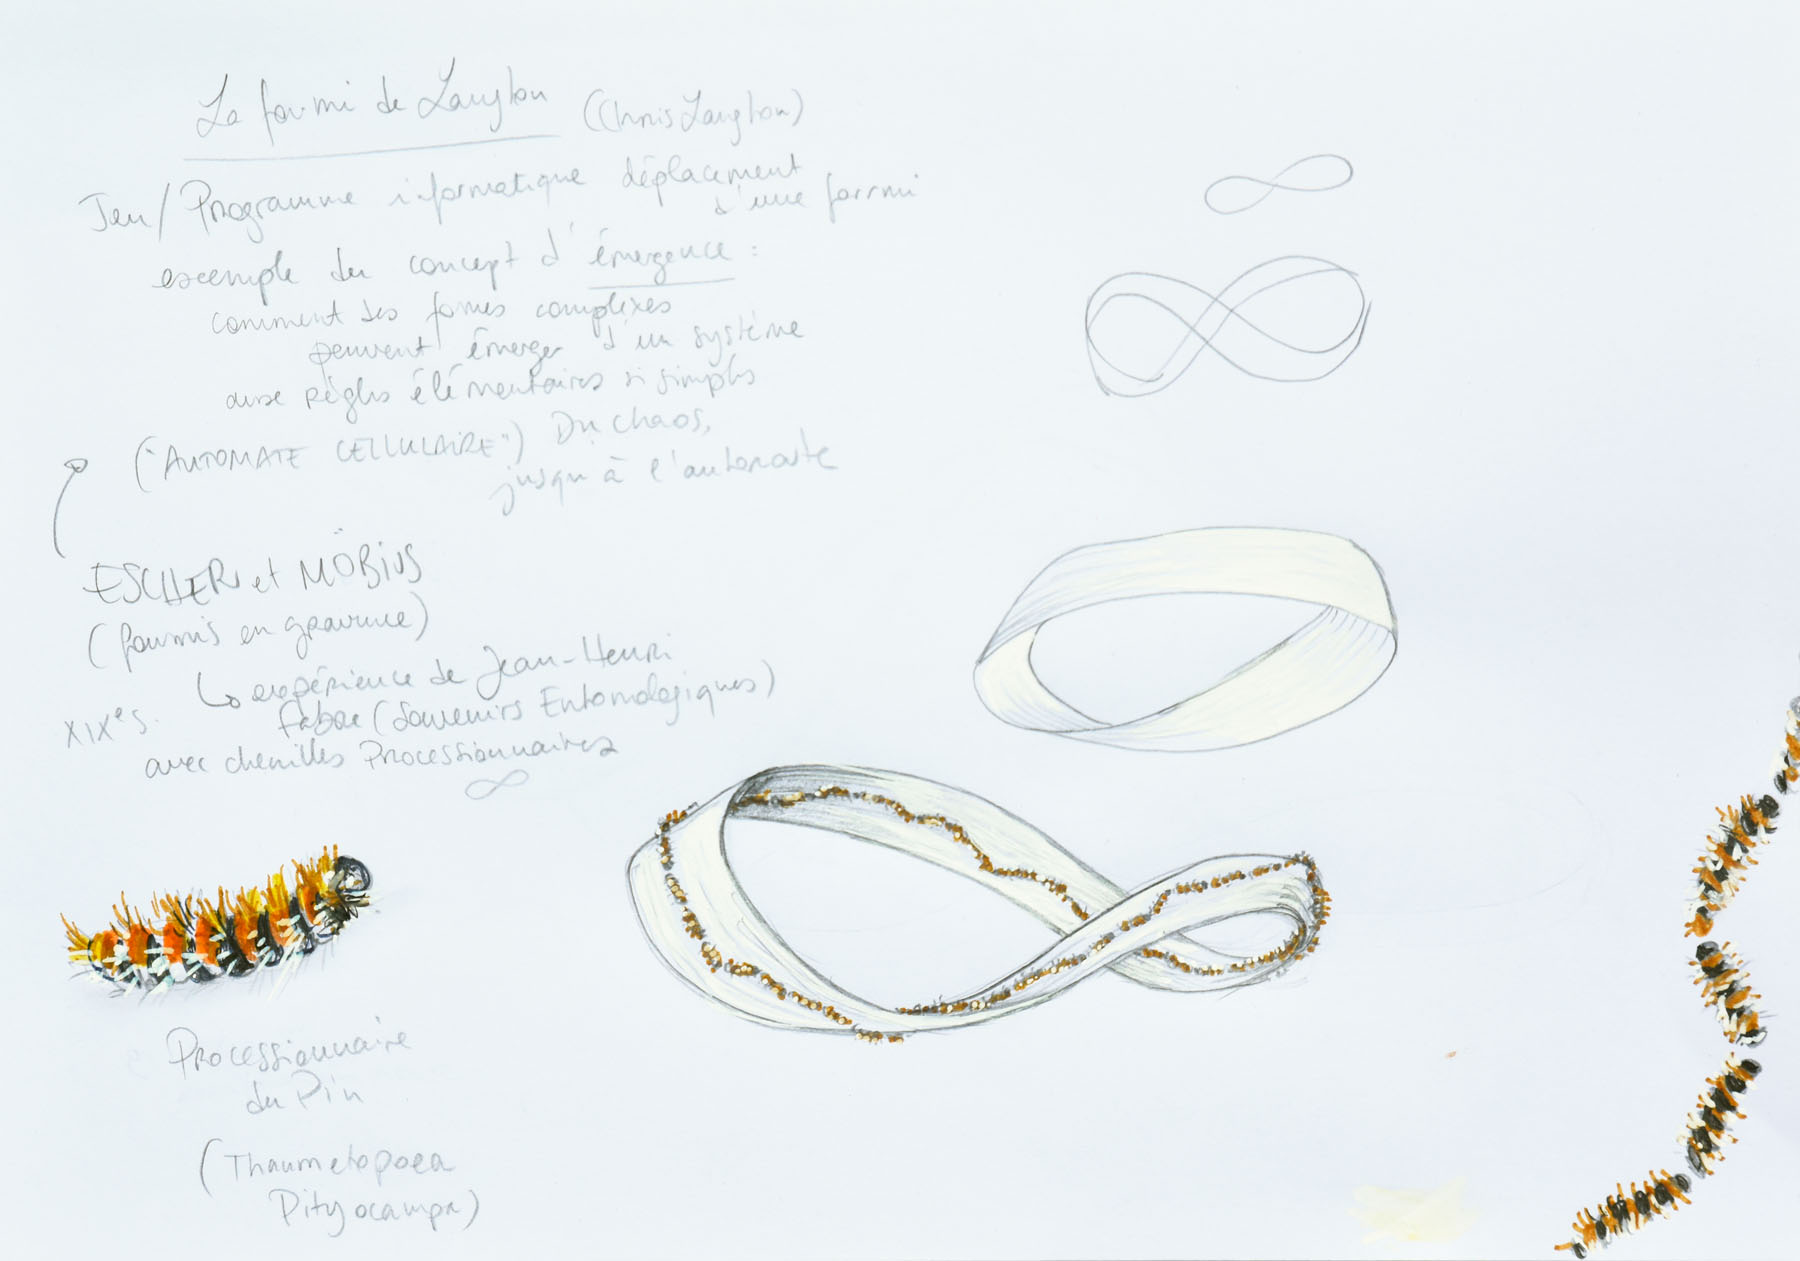 La fourmi de Langton (Chris Langton)
Jeu/Programme informatique déplacement
d'une fourmi
exemple du concept d'émergence :
comment des formes complexes
peuvent émerger d'un système
aux règles élémentaires si simples
("AUTOMATE CELLULAIRE") Du chaos,
jusqu'à l'autoroute
ESCHER et MÖBIUS
(fourmis en gravure)
↳ expérience de Jean-Henri
XIXe s. Fabre (Souvenirs Entomologiques)
avec chenilles Processionnaires
∞
Processionnaire
du Pin
(Thaumetopoea
Pityocampa)